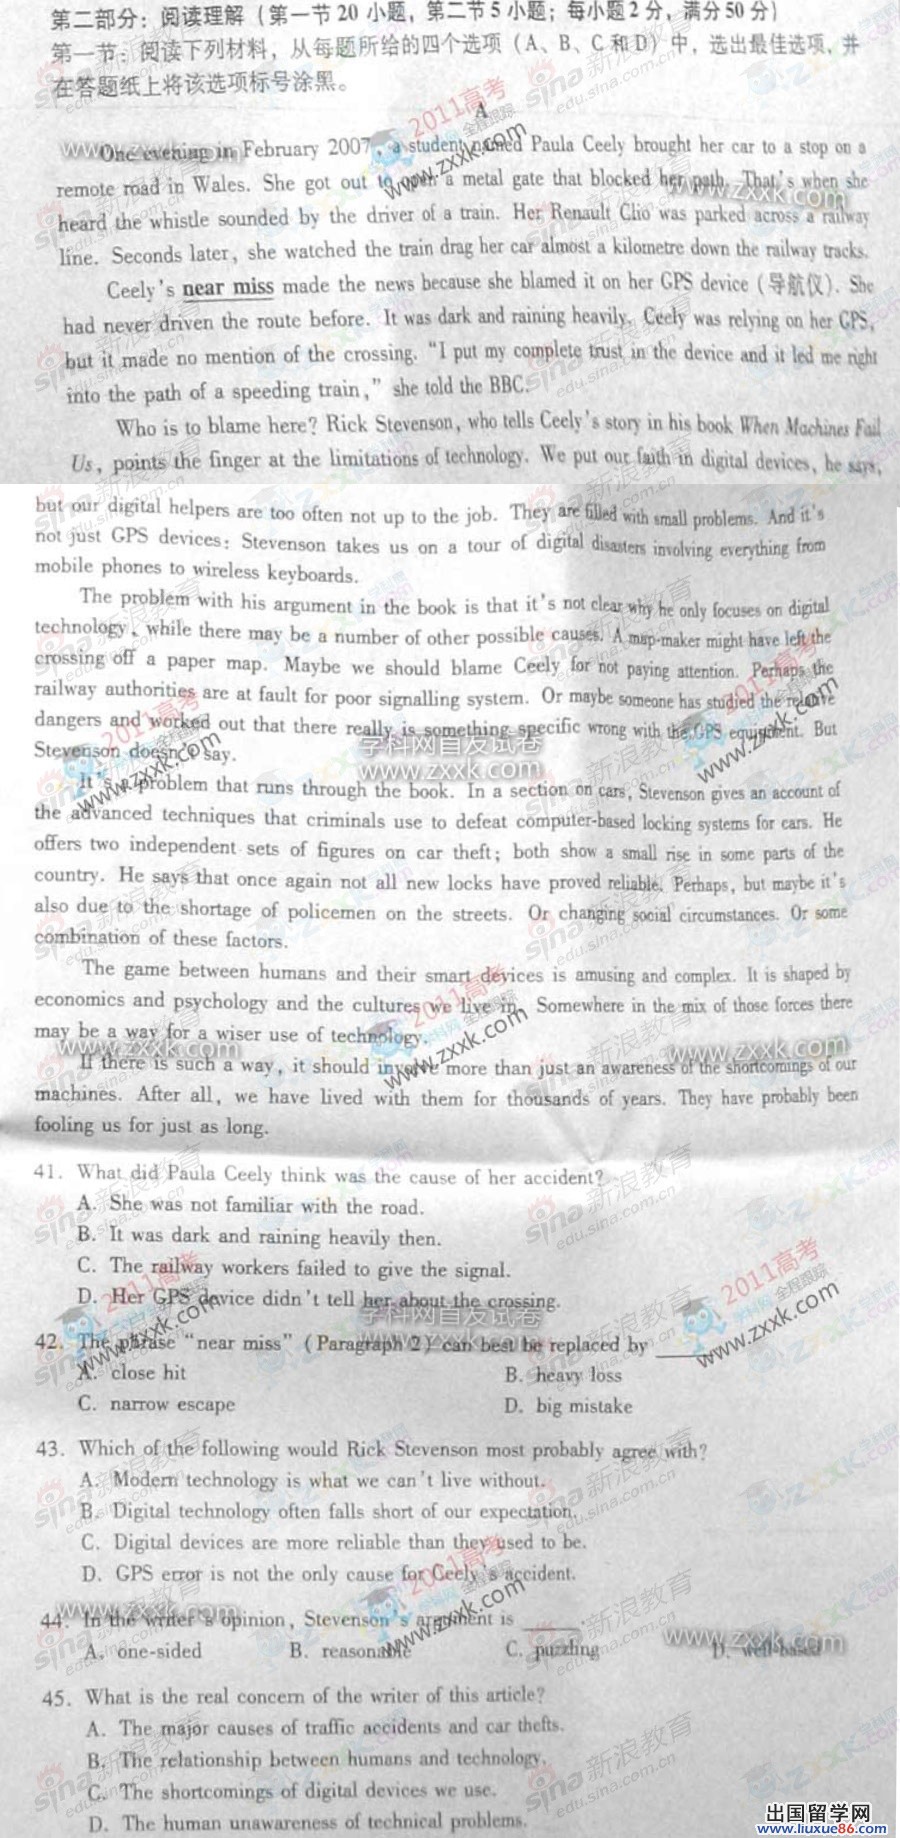 第二部分：阅读理解（第一节20小题，第二节5小题；每小题2分，满分50分）
第一节：阅读下列材料，从每题所给的四个选项（A、B、C和D）中，选出最佳选项，并
在答题纸上将该选项标号涂黑。
A
One evening in February 2007, a student named Paula Ceely brought her car to a stop on a
remote road in Wales. She got out to open a metal gate that blocked her path. That's when she
heard the whistle sounded by the driver of a train. Her Renault Clio was parked across a railway
line. Seconds later, she watched the train drag her car almost a kilometre down the railway tracks.
Ceely's near miss made the news because she blamed it on her GPS device (导航仪). She
had never driven the route before. It was dark and raining heavily. Ceely was relying on her GPS,
but it made no mention of the crossing. "I put my complete trust in the device and it led me right
into the path of a speeding train," she told the BBC.
Who is to blame here? Rick Stevenson, who tells Ceely's story in his book When Machines Fail
Us, points the finger at the limitations of technology. We put our faith in digital devices, he says,
but our digital helpers are too often not up to the job. They are filled with small problems. And it's
not just GPS devices: Stevenson takes us on a tour of digital disasters involving everything from
mobile phones to wireless keyboards.
The problem with his argument in the book is that it's not clear why he only focuses on digital
technology, while there may be a number of other possible causes. A map-maker might have left the
crossing off a paper map. Maybe we should blame Ceely for not paying attention. Perhaps the
railway authorities are at fault for poor signalling system. Or maybe someone has studied the relative
dangers and worked out that there really is something specific wrong with the GPS equipment. But
Stevenson doesn't say.
It's a problem that runs through the book. In a section on cars, Stevenson gives an account of
the advanced techniques that criminals use to defeat computer-based locking systems for cars. He
offers two independent sets of figures on car theft; both show a small rise in some parts of the
country. He says that once again not all new locks have proved reliable. Perhaps, but maybe it's
also due to the shortage of policemen on the streets. Or changing social circumstances. Or some
combination of these factors.
The game between humans and their smart devices is amusing and complex. It is shaped by
economics and psychology and the cultures we live in. Somewhere in the mix of those forces there
may be a way for a wiser use of technology.
If there is such a way, it should involve more than just an awareness of the shortcomings of our
machines. After all, we have lived with them for thousands of years. They have probably been
fooling us for just as long.
41. What did Paula Ceely think was the cause of her accident?
A. She was not familiar with the road.
B. It was dark and raining heavily then.
C. The railway workers failed to give the signal.
D. Her GPS device didn't tell her about the crossing.
42. The phrase "near miss" (Paragraph 2) can best be replaced by ______
A. close hit B. heavy loss
C. narrow escape D. big mistake
43. Which of the following would Rick Stevenson most probably agree with?
A. Modern technology is what we can't live without.
B. Digital technology often falls short of our expectation.
C. Digital devices are more reliable than they used to be.
D. GPS error is not the only cause for Ceely's accident.
44. In the writer's opinion, Stevenson's argument is ______.
A. one-sided B. reasonable C. puzzling D. well-based
45. What is the real concern of the writer of this article?
A. The major causes of traffic accidents and car thefts.
B. The relationship between humans and technology.
C. The shortcomings of digital devices we use.
D. The human unawareness of technical problems.
学科网首发试卷
www.zxxk.com
2011高考
学科网 全程跟踪
sina新浪教育
edu.sina.com.cn
出国留学网
www.liuxue86.com